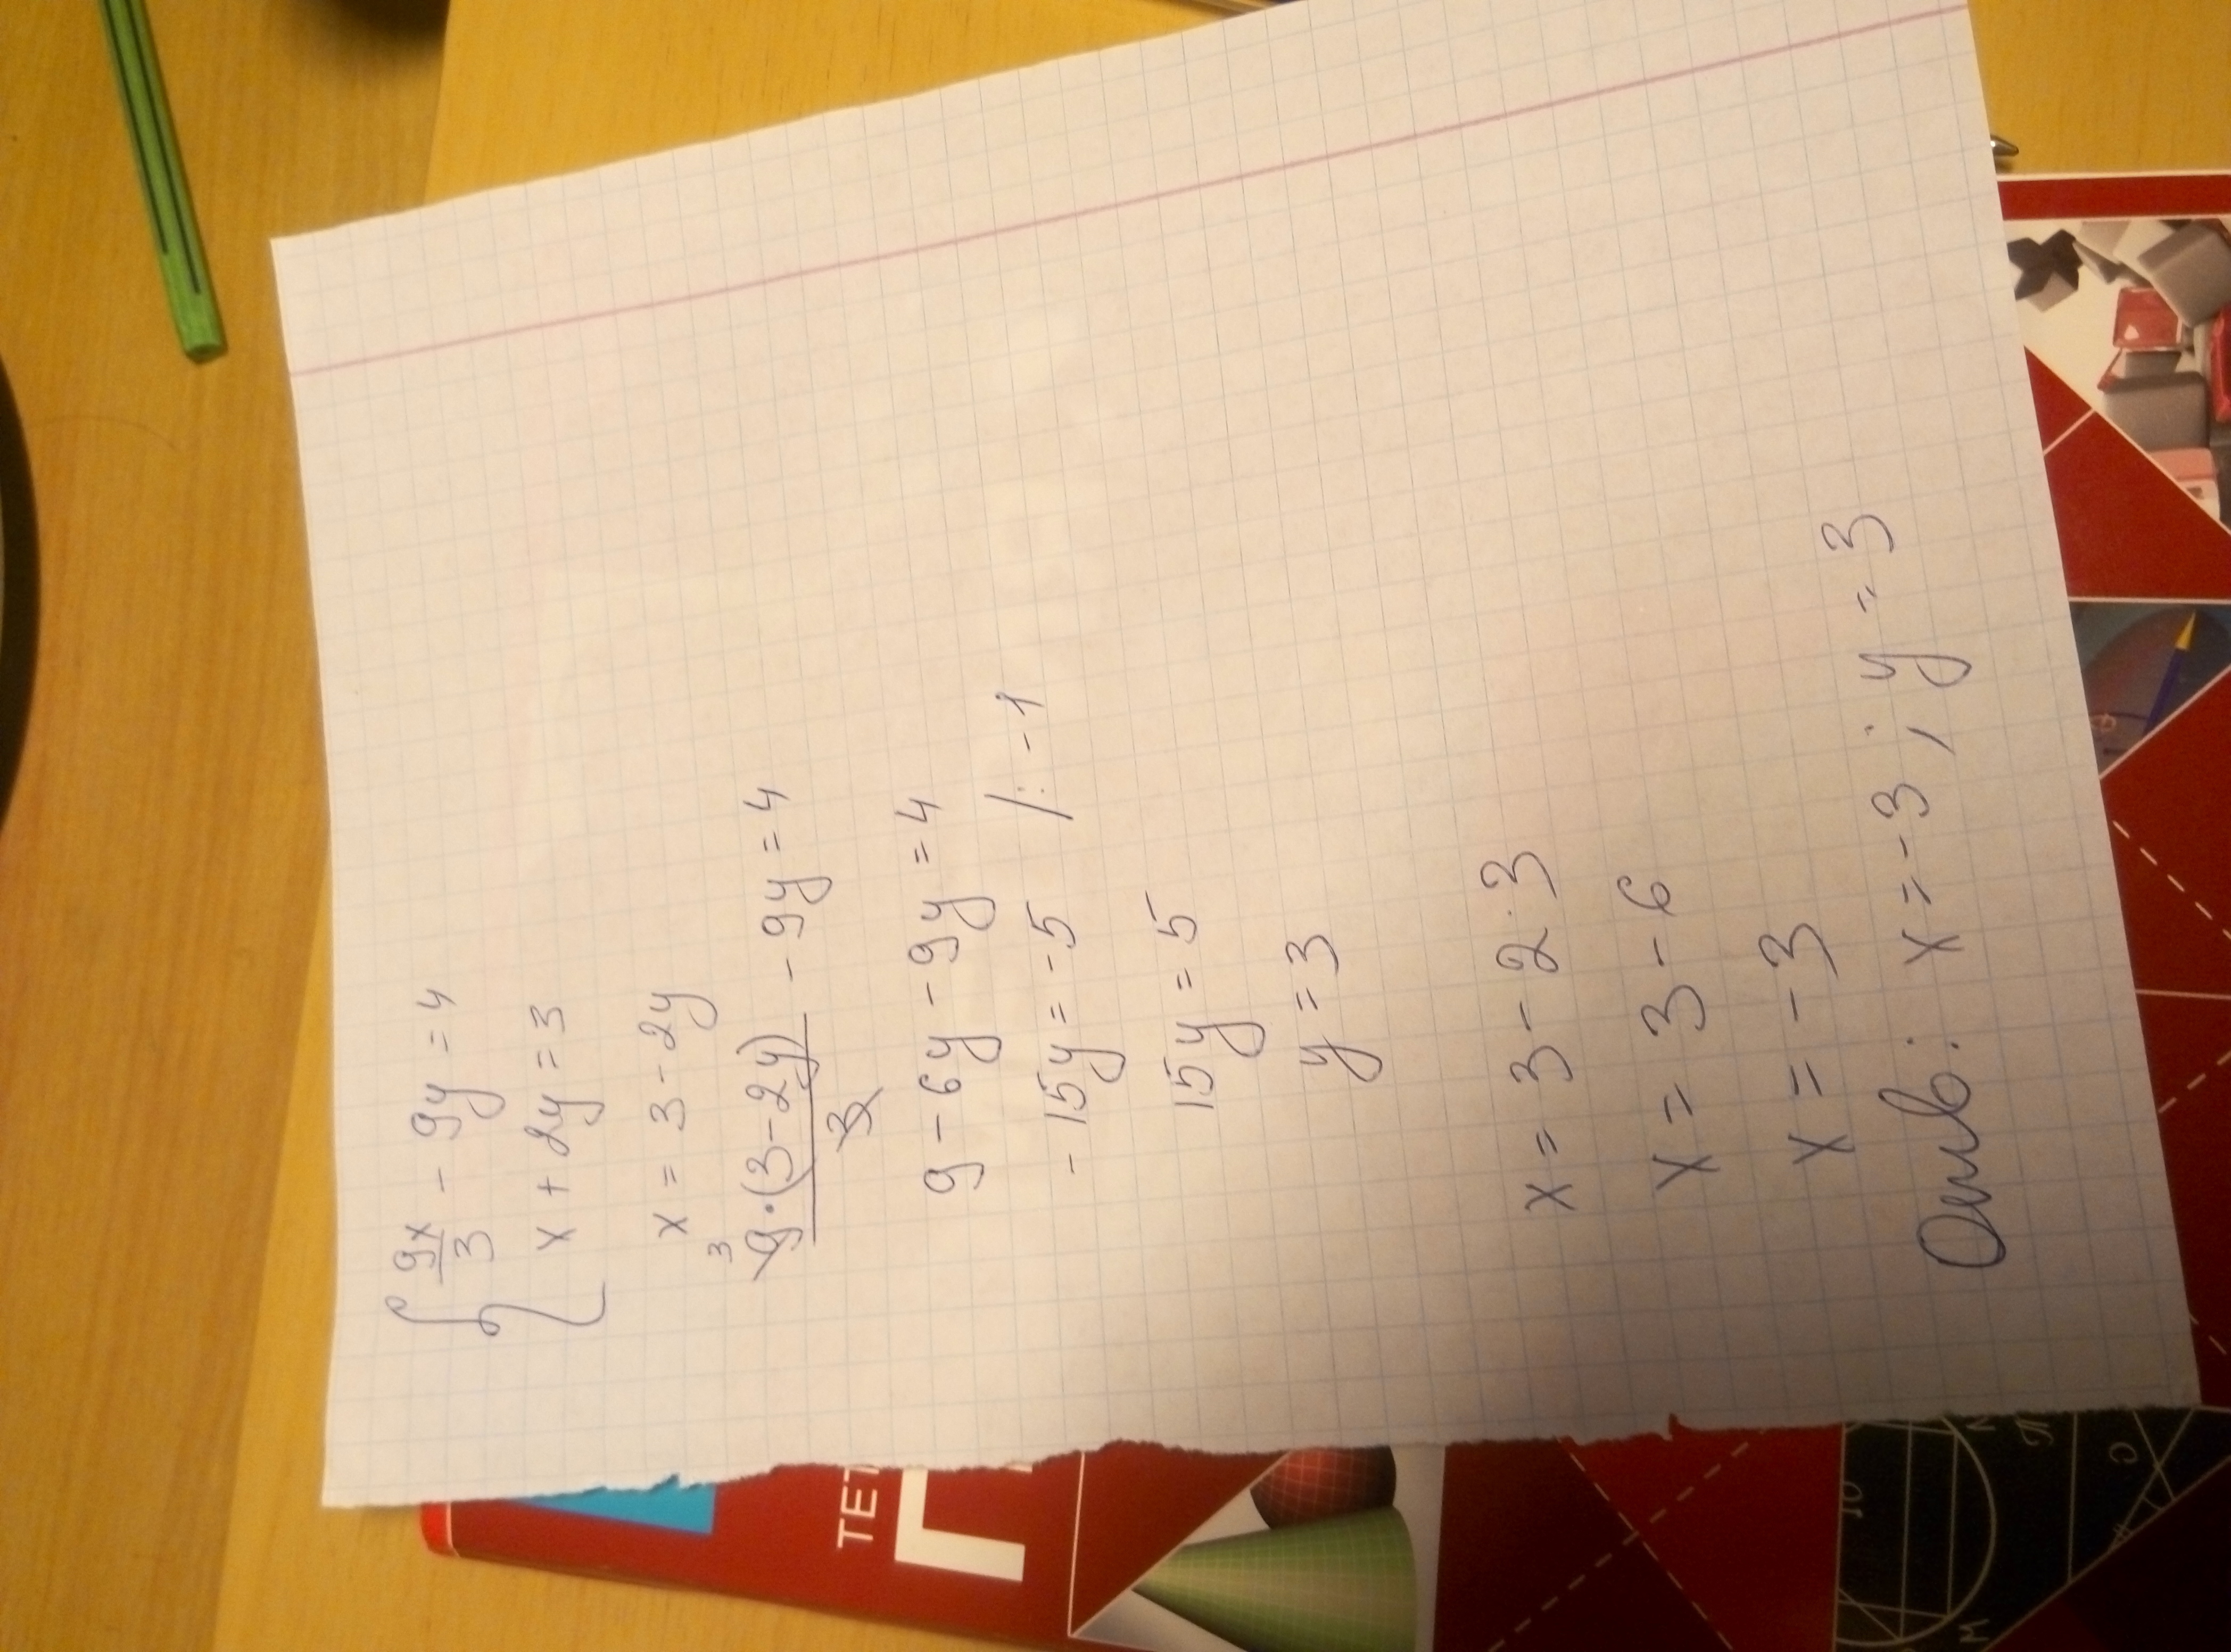 { 9x/3 - 9y = 4
x + 2y = 3
x = 3 - 2y
3
9·(3-2y)/3 - 9y = 4
9 - 6y - 9y = 4
-15y = -5 /: -1
15y = 5
y = 3
x = 3 - 2·3
x = 3 - 6
x = -3
Ответ: x = -3; y = 3
ТЕТ